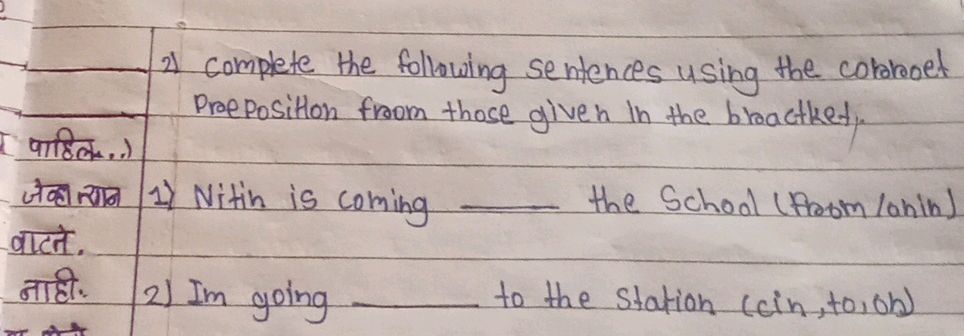 2) complete the following sentences using the cororoet
Proeposition froom those given in the broactket,.
पाहिले..)
1) Nitin is coming ______ the School (froom/anin)
वाटते.
नाही.
2) Im going ______ to the Station (cin, to, on)